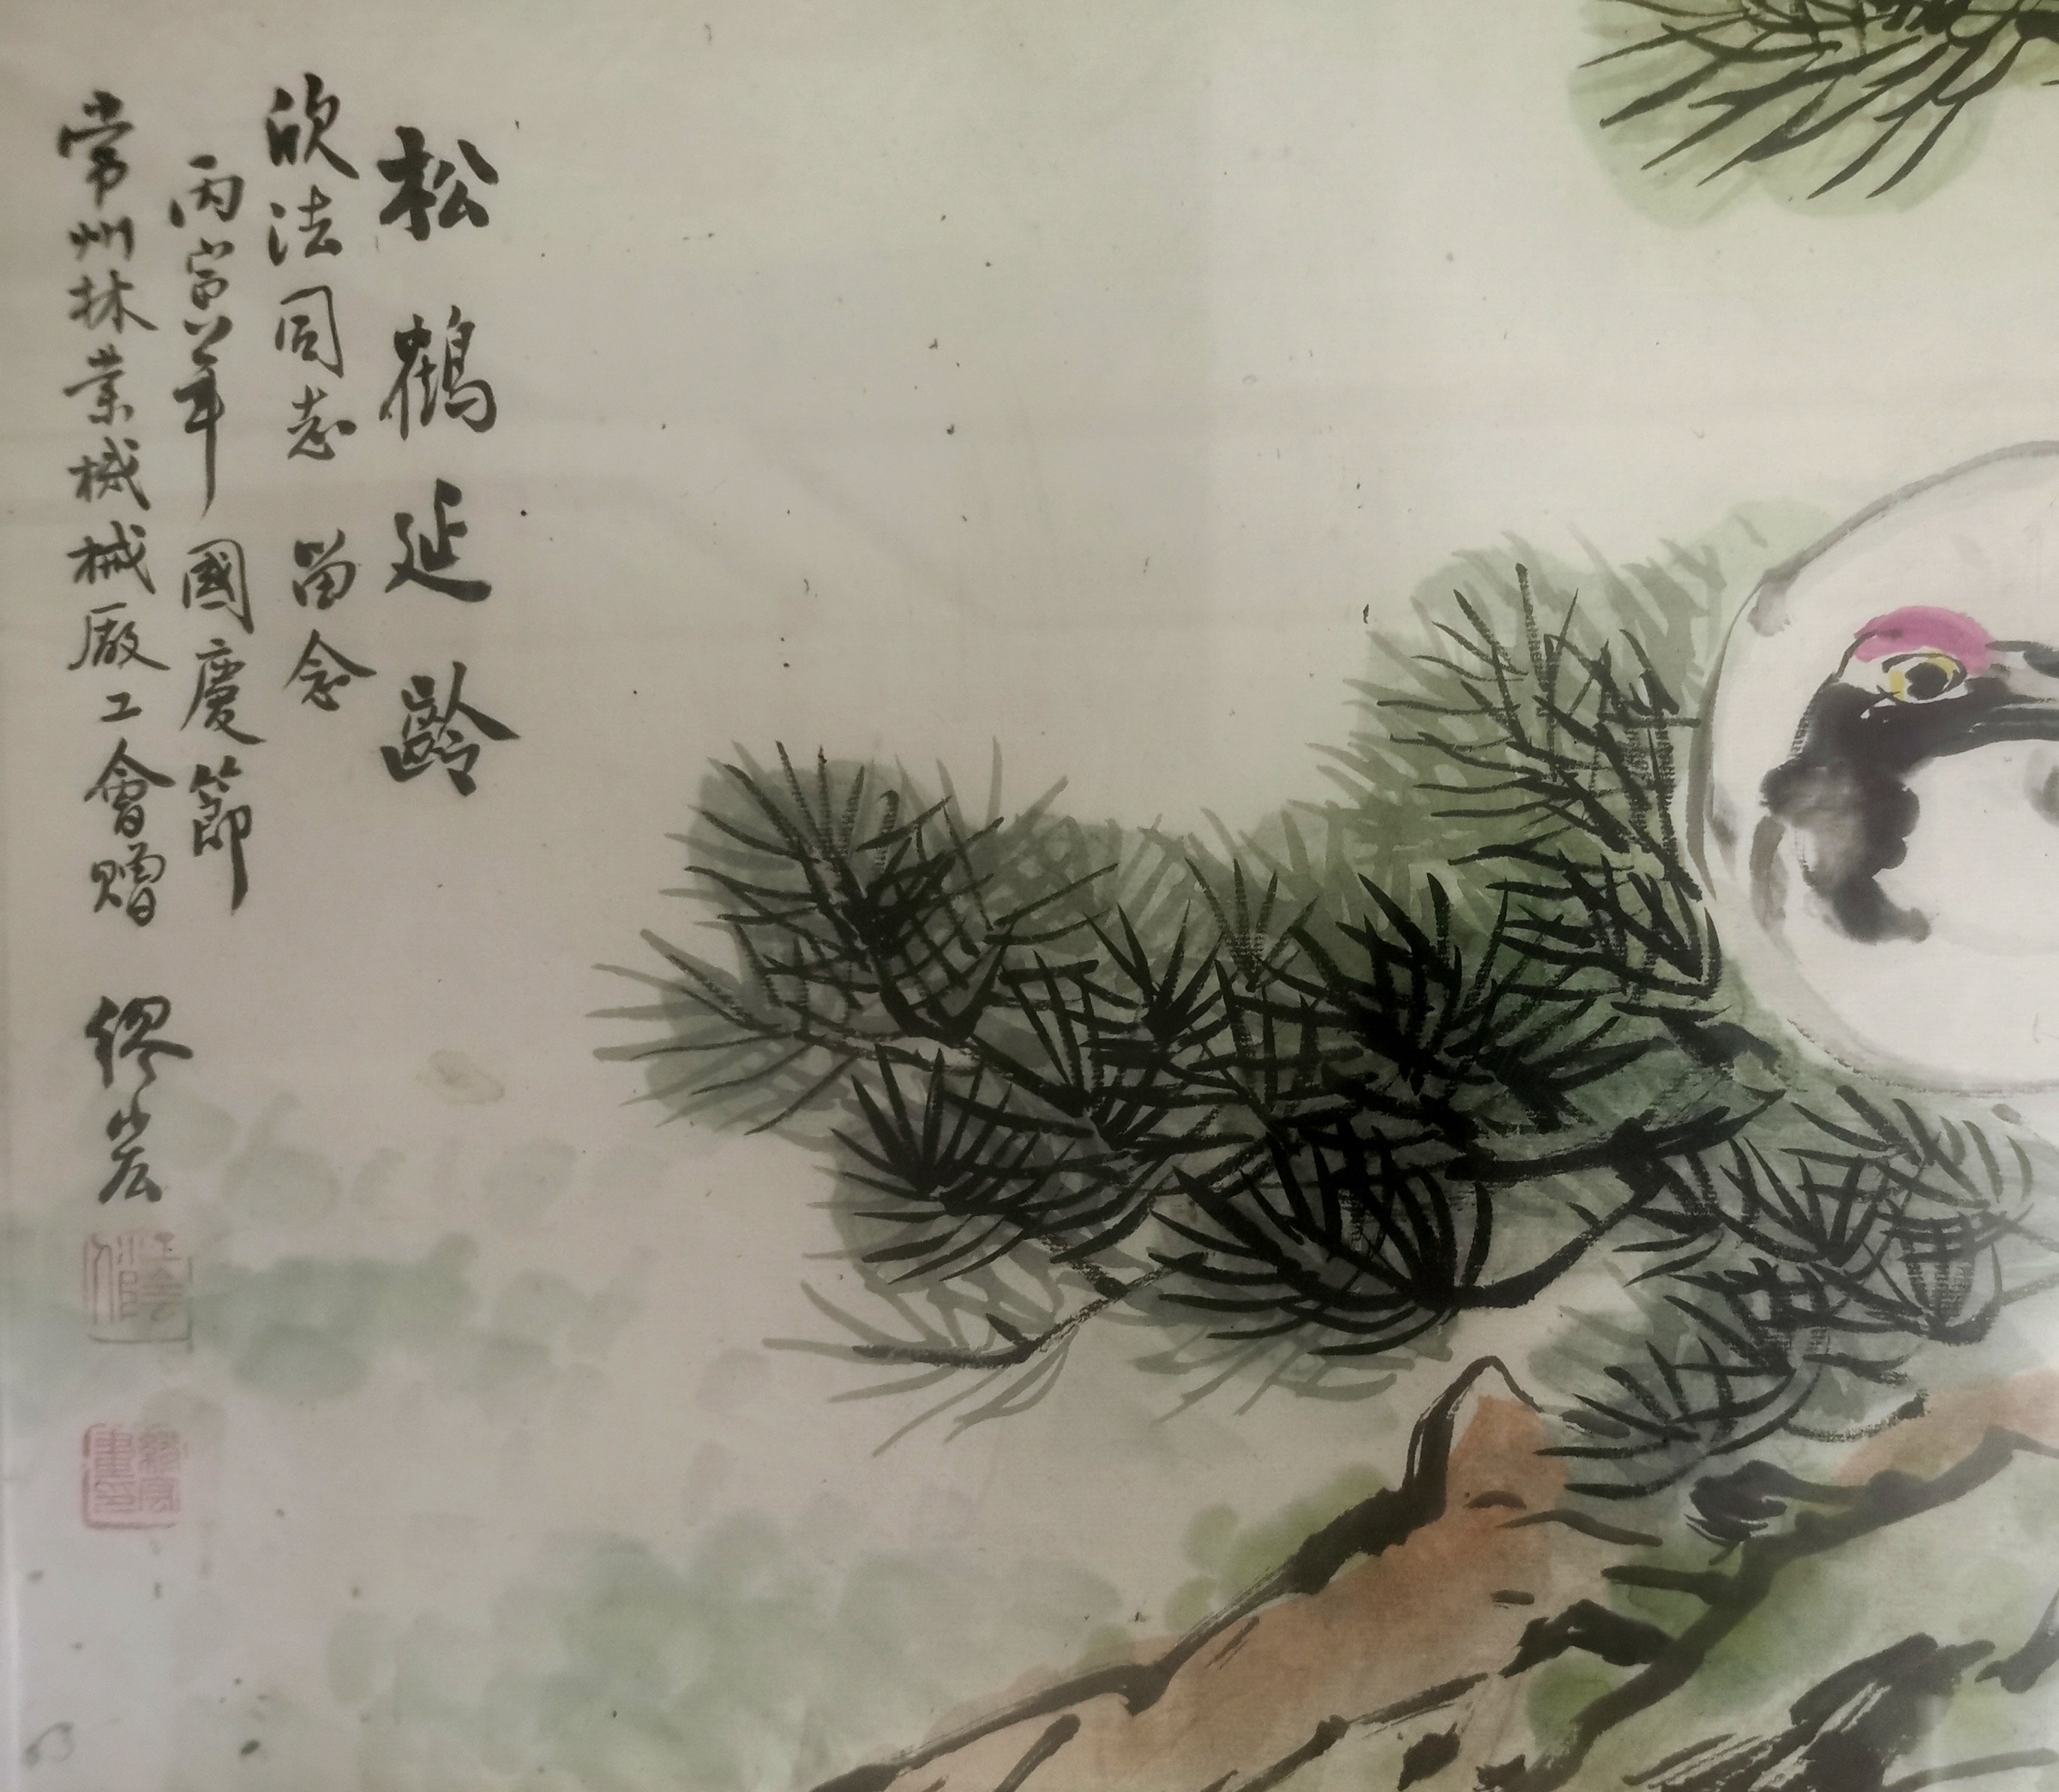 松鶴延齡
欣法同志 留念
丙寅年 國慶節
常州林業機械廠工會贈 繆宏